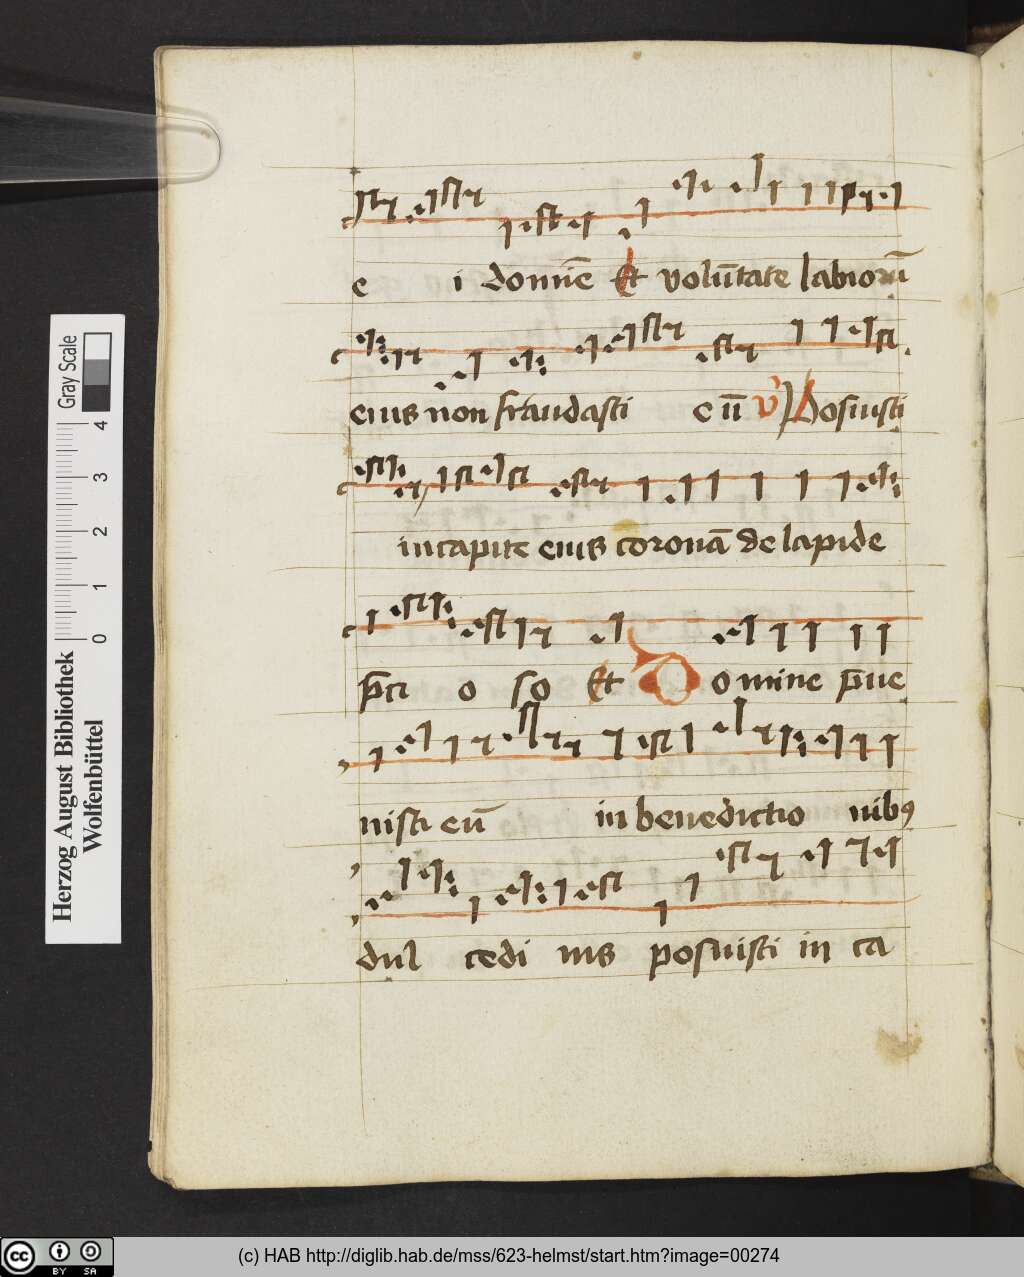 e i domīe Et volūtate labiorū
eius non fraudasti eū V Posuisti
in capite eius coronā de lapide
p̄ci o so Et Domine p̄ue
nisti eū in benedictio nibꝯ
dul cedi nis posuisti in ca
Herzog August Bibliothek
Wolfenbüttel
Gray Scale
0 1 2 3 4
cc BY SA
(c) HAB http://diglib.hab.de/mss/623-helmst/start.htm?image=00274